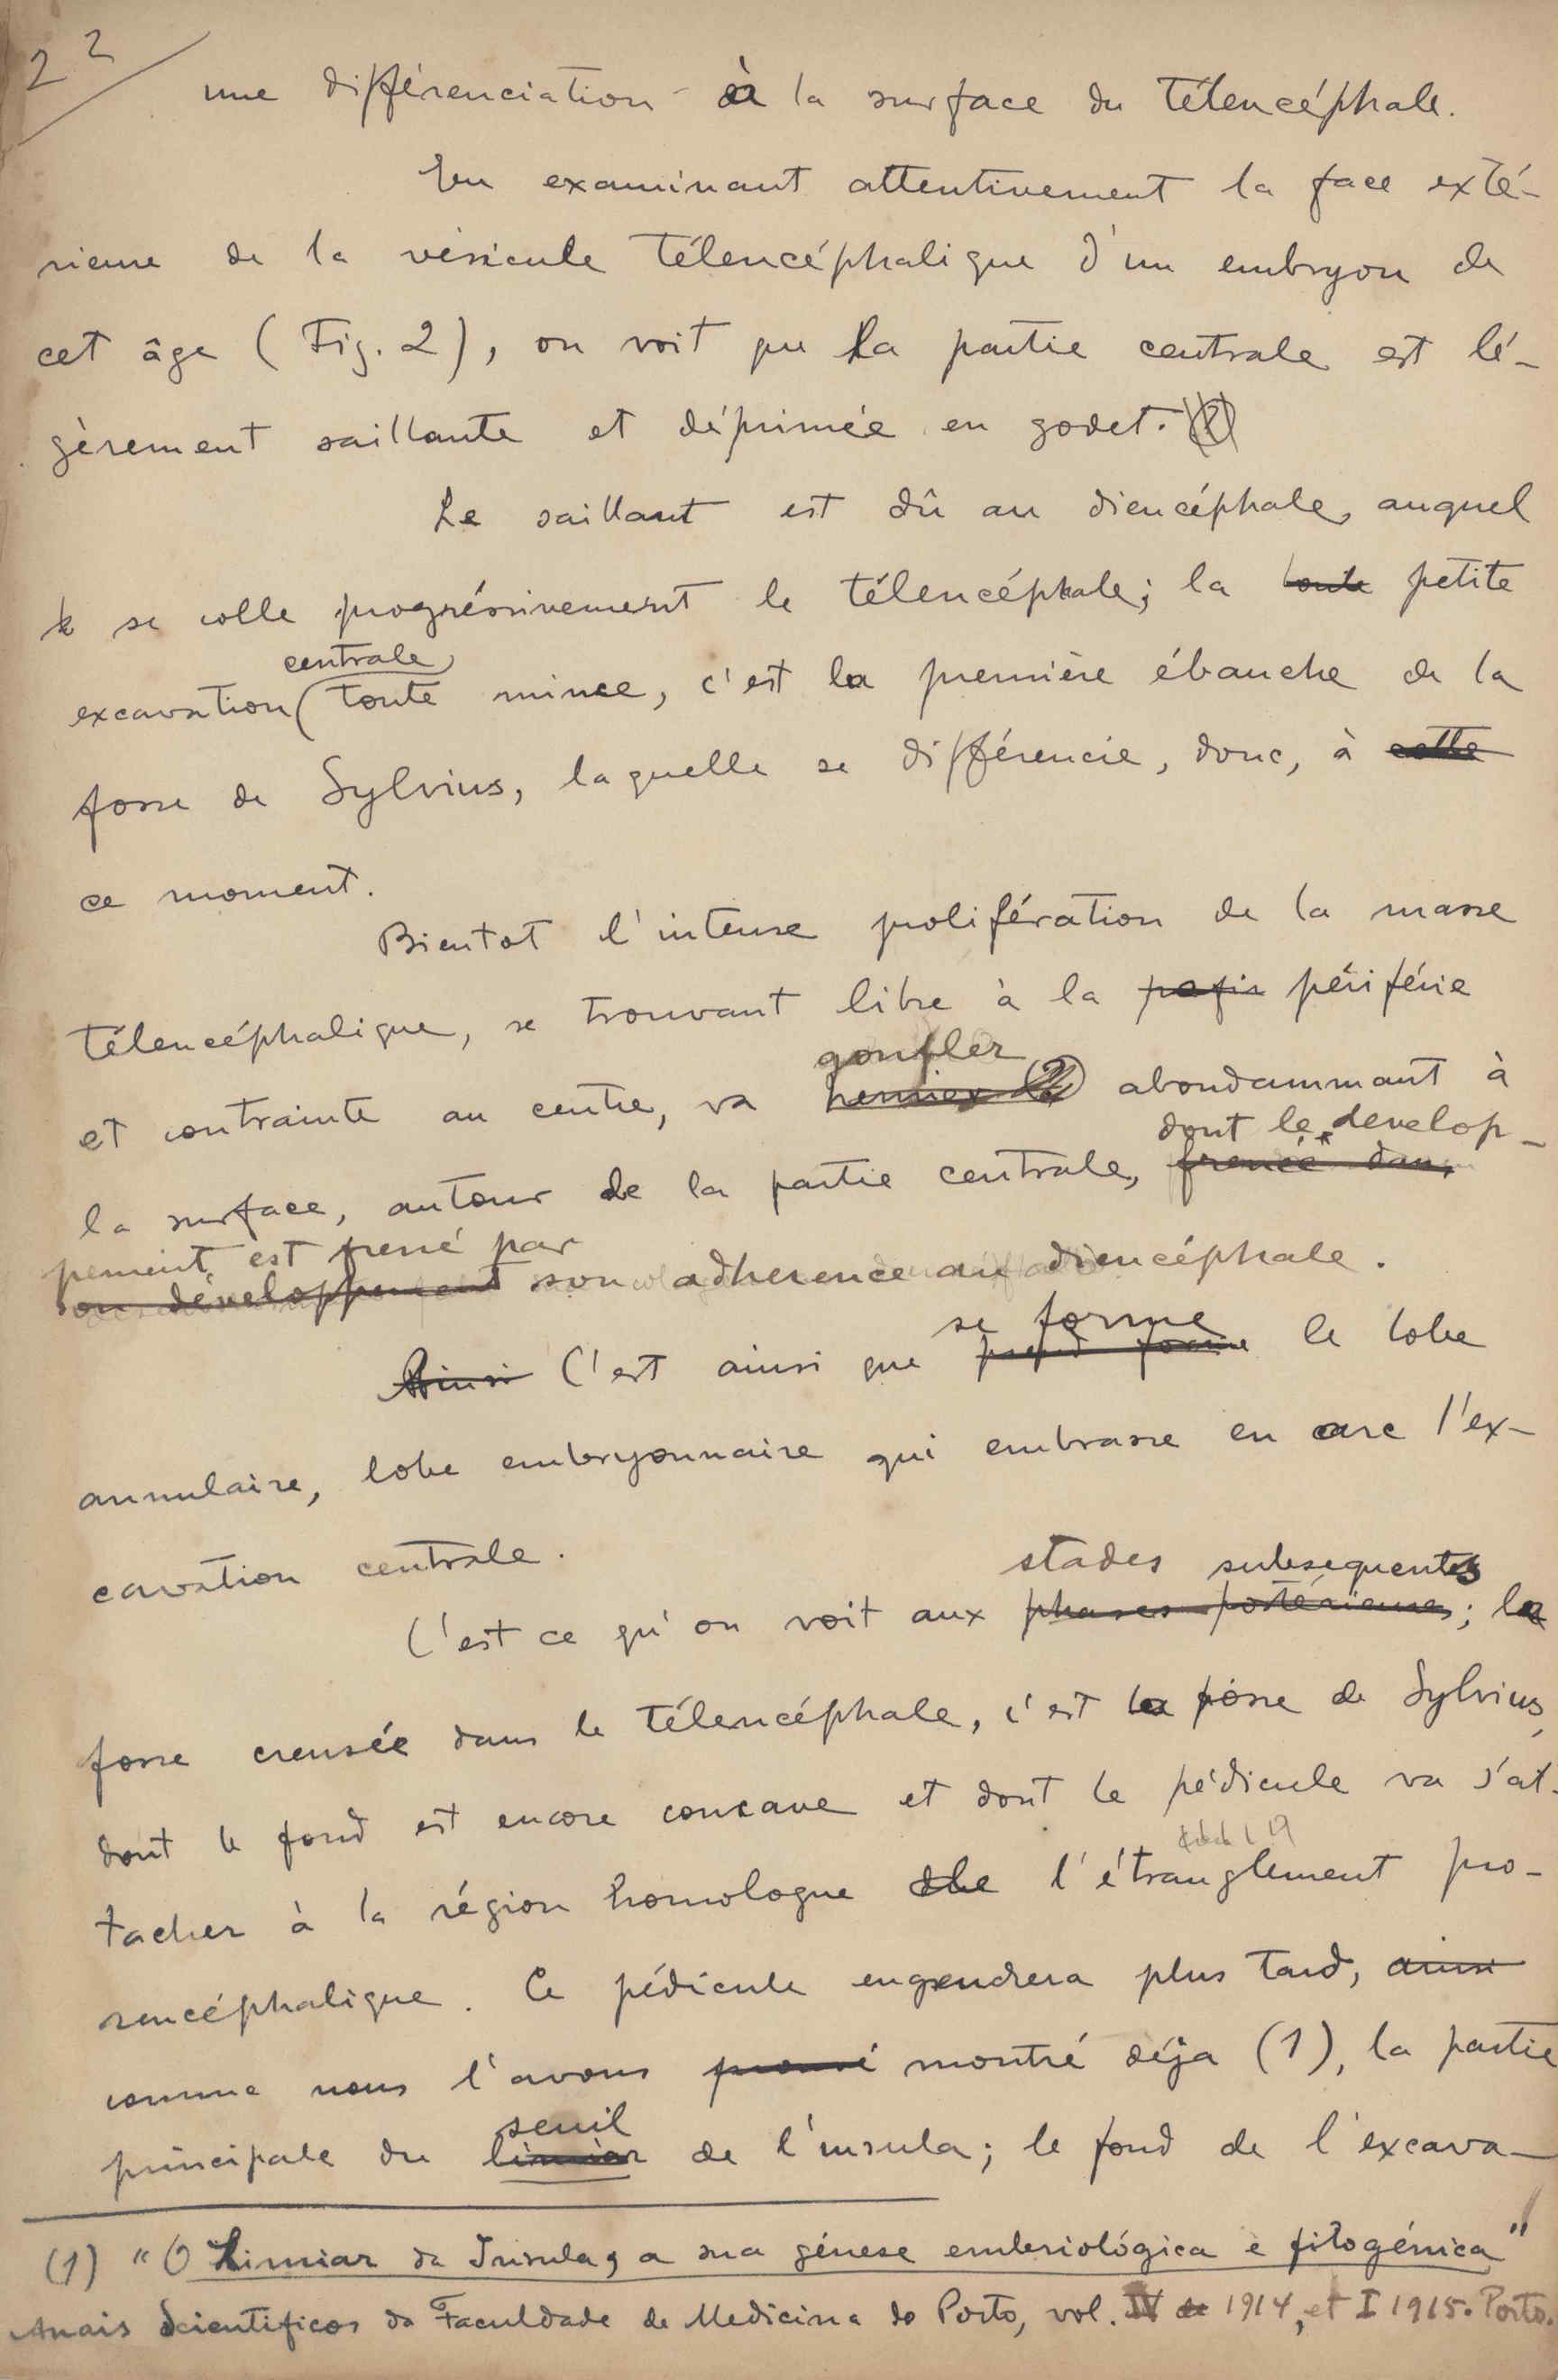 2 2
une différenciation à la surface du télencéphale.
En examinant attentivement la face exté-
rieure de la vésicule télencéphalique d'un embryon de
cet âge (Fig. 2), on voit que la partie centrale est lé-
gèrement saillante et déprimée en godet.
Le saillant est dû au diencéphale, auquel
se colle progréssivement le télencéphale; la toute petite
centrale
excavation toute mince, c'est la première ébauche de la
fosse de Sylvius, laquelle se différencie, donc, à cette
ce moment.
Bientot l'intense prolifération de la masse
télencéphalique, se trouvant libre à la pefir périférie
gonfler
et contrainte au centre, va hernier abondammant à
dont le develop-
la surface, autour de la partie centrale, frenée dans
pement est frené par
son développement son adherence au diencéphale.
se forme
Ainsi C'est ainsi que prend forme le lobe
annulaire, lobe embryonnaire qui embrasse en arc l'ex-
cavation centrale.
stades subsequents
C'est ce qu'on voit aux phases postérieures; la
fosse creusée dans le télencéphale, c'est la fosse de Sylvius,
dont le fond est encore concave et dont le pédicule va s'at-
tacher à la région homologue de l'étranglement pro-
sencéphalique. Ce pédicule engendrera plus tard, ainsi
comme nous l'avons prouvé montré déja (1), la partie
seuil
principale du limiar de l'insula; le fond de l'excava-
(1) "O Limiar da Insula, a sua génese embriológica e filogénica"
Anais Scientificos da Faculdade de Medicina do Porto, vol. IV de 1914, et I 1915. Porto.